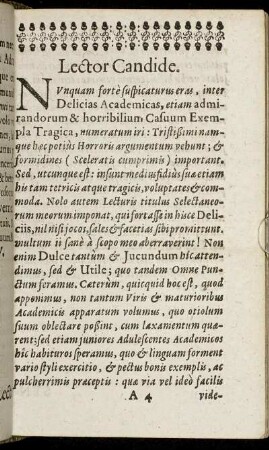 Lector Candide.
NVnquam fortè suspicaturus eras, inter
Delicias Academicas, etiam admi-
randorum & horribilium Casuum Exem-
pla Tragica, numeratum iri: Tristissimi nam-
que hęc potiùs Horroris argumentum vehunt; &
formidines (Sceleratis cumprimis) important.
Sed, utcunque est: insunt mediusfidius sua etiam
his tam tetricis atque tragicis, voluptates & com-
moda. Nolo autem Lecturis titulus Selectaneo-
rum meorum imponat, qui fortasse in hisce Deli-
ciis, nil nisi jocos, sales & facetias sibi promittunt.
multum ii sanè à scopo meo aberraverint! Non
enim Dulce tantùm & Jucundum hìc atten-
dimus, sed & Utile; quo tandem Omne Pun-
ctum feramus. Caterùm, quicquid hoc est, quod
apponimus, non tantum Viris & maturioribus
Academicis apparatum volumus, quo otiolum
suum oblectare possint, cum laxamentum quæ-
rent: sed etiam juniores Adulescentes Academicos
hîc habituros speramus, quo & linguam forment
vario styli exercitio, & pectus bonis exemplis, ac
pulcherrimis præceptis: quæ via vel ideò facilis
A 4 vide-